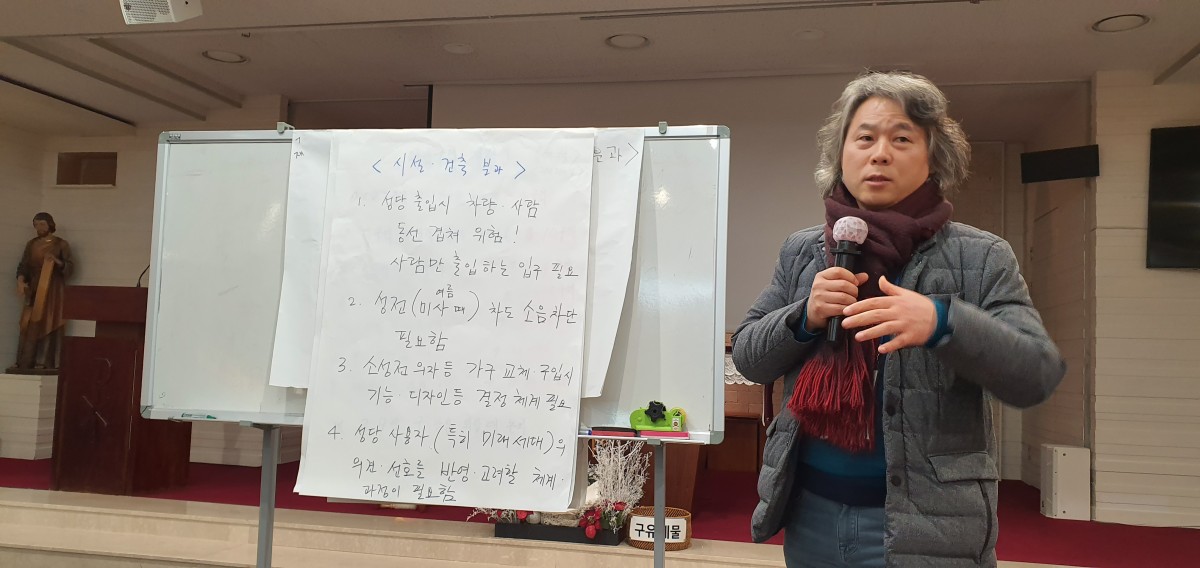 < 시설·건축 분과 >
1. 성당 출입시 차량·사람
동선 겹쳐 위험!
사람만 출입하는 입구 필요
2. 성전(미사때) 차도 소음차단
여름
필요함
3. 소성전 의자등 가구 교체·구입시
기능·디자인등 결정 체계 필요
4. 성당 사용자(특히 미래세대)의
의견·선호를 반영·고려할 체계·
과정이 필요함
분과>
구유예물